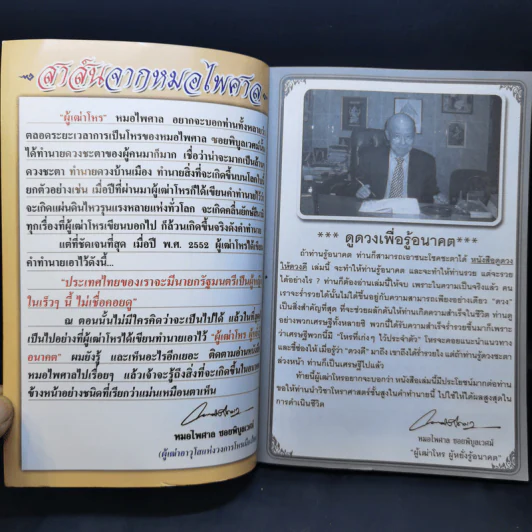 สาส์นจากหมอไพศาล
"ผู้เฒ่าโหร" หมอไพศาล อยากจะบอกท่านทั้งหลายว่า
ตลอดระยะเวลาการเป็นโหรของหมอไพศาล ซอยพิบูลเวศม์
ได้ทำนายดวงชะตาของผู้คนมาก็มาก เชื่อว่าน่าจะมากเป็นล้าน
ดวงชะตา ทำนายดวงบ้านเมือง ทำนายสิ่งที่จะเกิดขึ้นบนโลกใบ
ยกตัวอย่างเช่น เมื่อปีที่ผ่านมาผู้เฒ่าโหรก็ได้เขียนคำทำนายไว้ว่า
จะเกิดแผ่นดินไหวรุนแรงหลายแห่งทั่วโลก จะเกิดคลื่นยักษ์
ทุกเรื่องที่ผู้เฒ่าโหรเขียนบอกไป ก็ล้วนเกิดขึ้นจริงดังคำทำนาย
แต่ที่ชัดเจนที่สุด เมื่อปี พ.ศ. 2552 ผู้เฒ่าโหรได้เขียน
คำทำนายเอาไว้ดังนี้...
"ประเทศไทยของเราจะมีนายกรัฐมนตรีเป็นผู้หญิง
ในเร็วๆ นี้ ไม่เชื่อคอยดู"
ณ ตอนนั้นไม่มีใครคิดว่าจะเป็นไปได้ แล้วในที่สุด
เป็นไปอย่างที่ผู้เฒ่าโหรได้เขียนทำนายเอาไว้ "ผู้เฒ่าโหร ผู้หยั่งรู้
อนาคต" ผมยังรู้ และเห็นอะไรอีกเยอะ ติดตามอ่าน
หมอไพศาลไปเรื่อยๆ แล้วเจ้าจะรู้ถึงสิ่งที่จะเกิดขึ้นในอนาคต
ข้างหน้าอย่างชนิดที่เรียกว่าแม่นเหมือนตาเห็น
หมอไพศาล ซอยพิบูลเวศม์
(ผู้เฒ่าอาวุโสแห่งวงการโหรเมืองไทย
*** ดูดวงเพื่อรู้อนาคต***
ถ้าท่านรู้อนาคต ท่านก็สามารถเอาชนะโชคชะตาได้ หนังสือดูดวง
ให้ดวงดี เล่มนี้ จะทำให้ท่านรู้อนาคต และจะทำให้ท่านรวย แต่จะรวย
ได้อย่างไร ? ท่านก็ต้องอ่านเล่มนี้ให้จบ เพราะในความเป็นจริงแล้ว คน
เราจะร่ำรวยได้นั้นไม่ได้ขึ้นอยู่กับความสามารถเพียงอย่างเดียว "ดวง"
เป็นสิ่งสำคัญที่สุด ที่จะช่วยผลักดันให้ท่านเกิดความสำเร็จในชีวิต ท่านดู
อย่างพวกเศรษฐีทั้งหลายซิ พวกนี้ได้รับความสำเร็จร่ำรวยขึ้นมาก็เพราะ
ว่าเศรษฐีพวกนี้มี "โหรที่เก่งๆ ไว้ประจำตัว" โหรจะคอยแนะนำแนวทาง
และชี้ช่องให้ เมื่อรู้ว่า "ดวงดี" มาถึง เขาถึงได้ร่ำรวยไง แต่ถ้าท่านรู้ดวงชะตา
ล่วงหน้า ท่านก็เป็นเศรษฐีไปแล้ว
ท้ายนี้ผู้เฒ่าโหรอยากจะบอกว่า หนังสือเล่มนี้มีประโยชน์มากต่อท่าน
ขอให้ท่านนำวิชาโหราศาสตร์ชั้นสูงในคำทำนายนี้ ไปใช้ให้ได้ผลสูงสุดใน
การดำเนินชีวิต
หมอไพศาล ซอยพิบูลเวศม์
"ผู้เฒ่าโหร ผู้หยั่งรู้อนาคต"